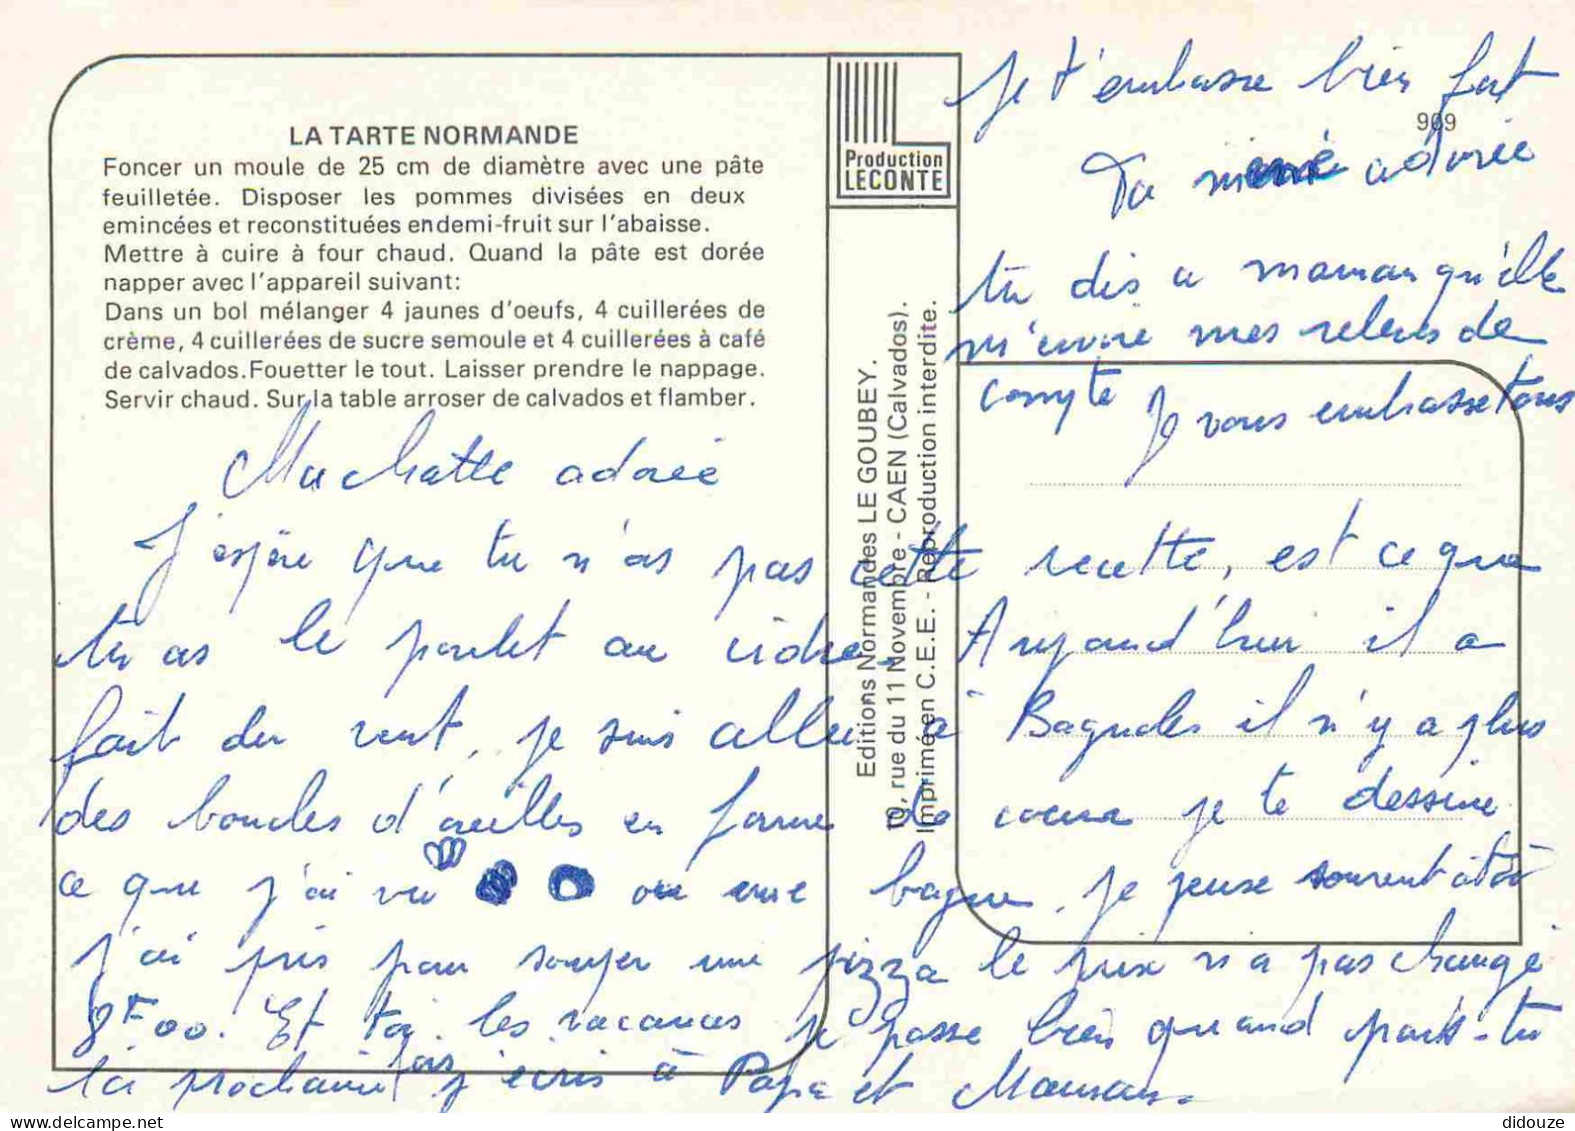 LA TARTE NORMANDE
Foncer un moule de 25 cm de diamètre avec une pâte
feuilletée. Disposer les pommes divisées en deux
emincées et reconstituées en demi-fruit sur l'abaisse.
Mettre à cuire à four chaud. Quand la pâte est dorée
napper avec l'appareil suivant:
Dans un bol mélanger 4 jaunes d'oeufs, 4 cuillerées de
crème, 4 cuillerées de sucre semoule et 4 cuillerées à café
de calvados. Fouetter le tout. Laisser prendre le nappage.
Servir chaud. Sur la table arroser de calvados et flamber.
Production
LECONTE
Editions Normandes LE GOUBEY.
19, rue du 11 Novembre - CAEN (Calvados).
Imprimé en C.E.E. - Reproduction interdite.
969
Ma chatte adorée
J'espère que tu n'as pas cette recette, est ce que
tu as le poulet au cidre. Aujourd'hui il a
fait du vent, je suis allée à Bagnoles il n'y a plus
des boucles d'oreilles en forme de coeur je te dessine
ce que j'ai vu ou une bague. Je pense souvent à toi
j'ai pris pour souper une pizza le prix n'a pas changé
8F00. Et toi les vacances je passe bien quand pars-tu
la prochaine fois j'écris à Papa et Maman.
Je t'embrasse bien fort
Ta mémé adorée
tu dis a maman qu'elle
m'envoie mes relevés de
compte Je vous embrasse tous
didouze